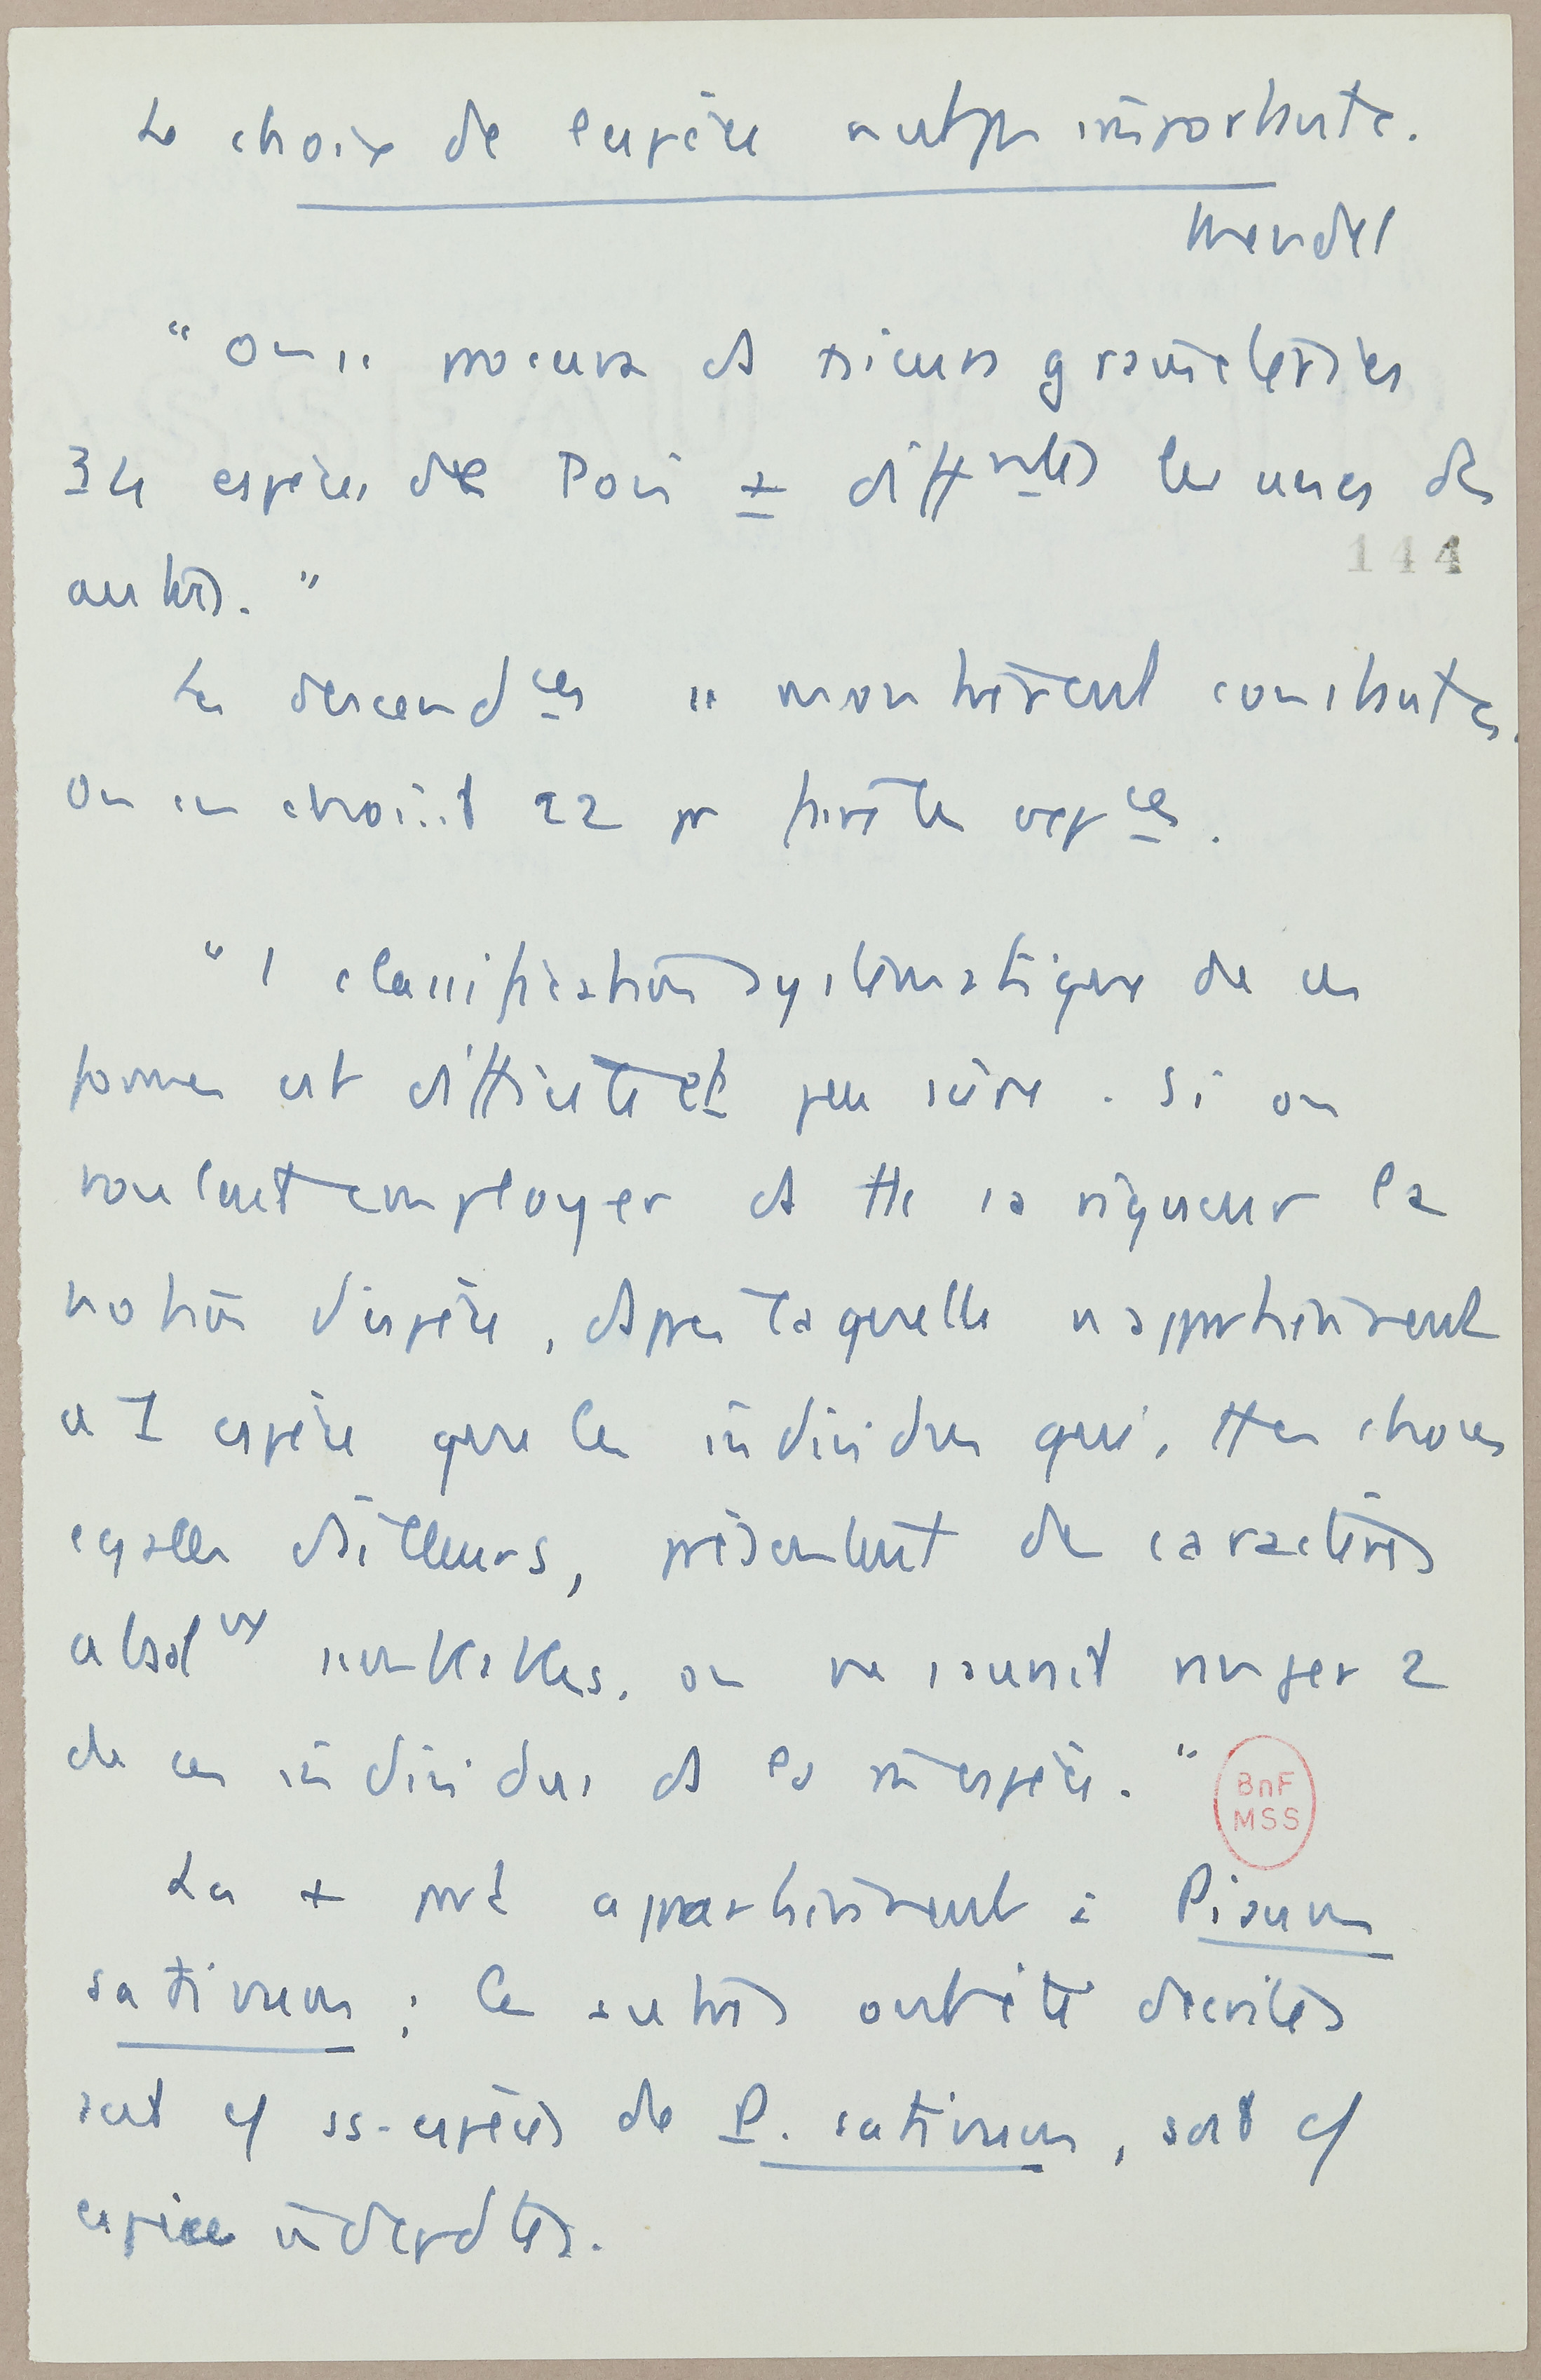 Le choix de l'espèce n'est pas importante.
Mendel
"On se procura ds plusieurs graineteries
34 espèces de Pois ± diff^ntes les unes des
autres."
144
Les descend^ces se montrèrent constantes.
On en choisit 22 pr faire les exp^ces.
"1 classification systématique de ces
formes est difficile et peu sûre. Si on
voulait employer ds tte sa rigueur la
notion d'espèce, d'après laquelle n'appartiennent
à 1 espèce que les individus qui, ttes choses
égales d'ailleurs, présentent des caractères
absol^nt semblables, on ne saurait ranger 2
de ces individus ds la m espèce."
Les + part appartiennent à Pisum
sativum ; les autres ont été décrites
soit c/ ss-espèces de P. sativum, soit c/
espèces indépdtes.
BnF
MSS